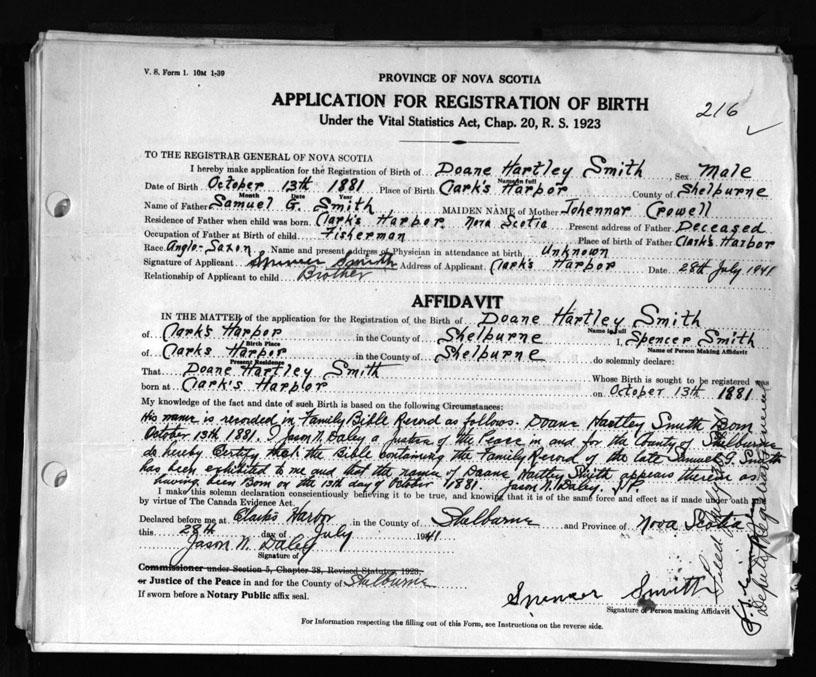 V. S. Form 1. 10M 1-39
PROVINCE OF NOVA SCOTIA
APPLICATION FOR REGISTRATION OF BIRTH
216
Under the Vital Statistics Act, Chap. 20, R. S. 1923
TO THE REGISTRAR GENERAL OF NOVA SCOTIA
I hereby make application for the Registration of Birth of Doane Hartley Smith Sex Male
Name in full
Date of Birth October 13th 1881 Place of Birth Clark's Harbor County of Shelburne
Month Date Year
Name of Father Samuel G. Smith MAIDEN NAME of Mother Johennar Crowell
Residence of Father when child was born Clark's Harbor Nova Scotia Present address of Father Deceased
Occupation of Father at Birth of child Fisherman Place of birth of Father Clark's Harbor
Race Anglo-Saxon Name and present address of Physician in attendance at birth Unknown
Signature of Applicant Spencer Smith Address of Applicant Clark's Harbor Date 28th July 1941
Relationship of Applicant to child Brother
AFFIDAVIT
IN THE MATTER of the application for the Registration of the Birth of Doane Hartley Smith
Name in full
of Clark's Harbor in the County of Shelburne I, Spencer Smith
Birth Place Name of Person Making Affidavit
of Clarks Harbor in the County of Shelburne do solemnly declare:
Present Residence
That Doane Hartley Smith Whose Birth is sought to be registered was
born at Clark's Harbor on October 13th 1881
My knowledge of the fact and date of such Birth is based on the following Circumstances:
His name is recorded in Family Bible Record as follows. Doane Hartley Smith Born
October 13th 1881. I Jason N. Daley a Justice of the Peace in and for the County of Shelburne
do hereby Certify that the Bible containing the Family Record of the late Samuel G. Smith
has been exhibited to me and that the name of Doane Hartley Smith appears therein as
having been Born on the 13th day of October 1881. Jason N. Daley J.P.
I make this solemn declaration conscientiously believing it to be true, and knowing that it is of the same force and effect as if made under oath
by virtue of The Canada Evidence Act.
Declared before me at Clarks Harbor in the County of Shelburne and Province of Nova Scotia
this 28th day of July 1941
Jason N. Daley
Signature of
Commissioner under Section 5, Chapter 38, Revised Statutes, 1923,
or Justice of the Peace in and for the County of Shelburne
If sworn before a Notary Public affix seal.
Spencer Smith
Signature of Person making Affidavit
For Information respecting the filling out of this Form, see Instructions on the reverse side.
Deputy Registrar General